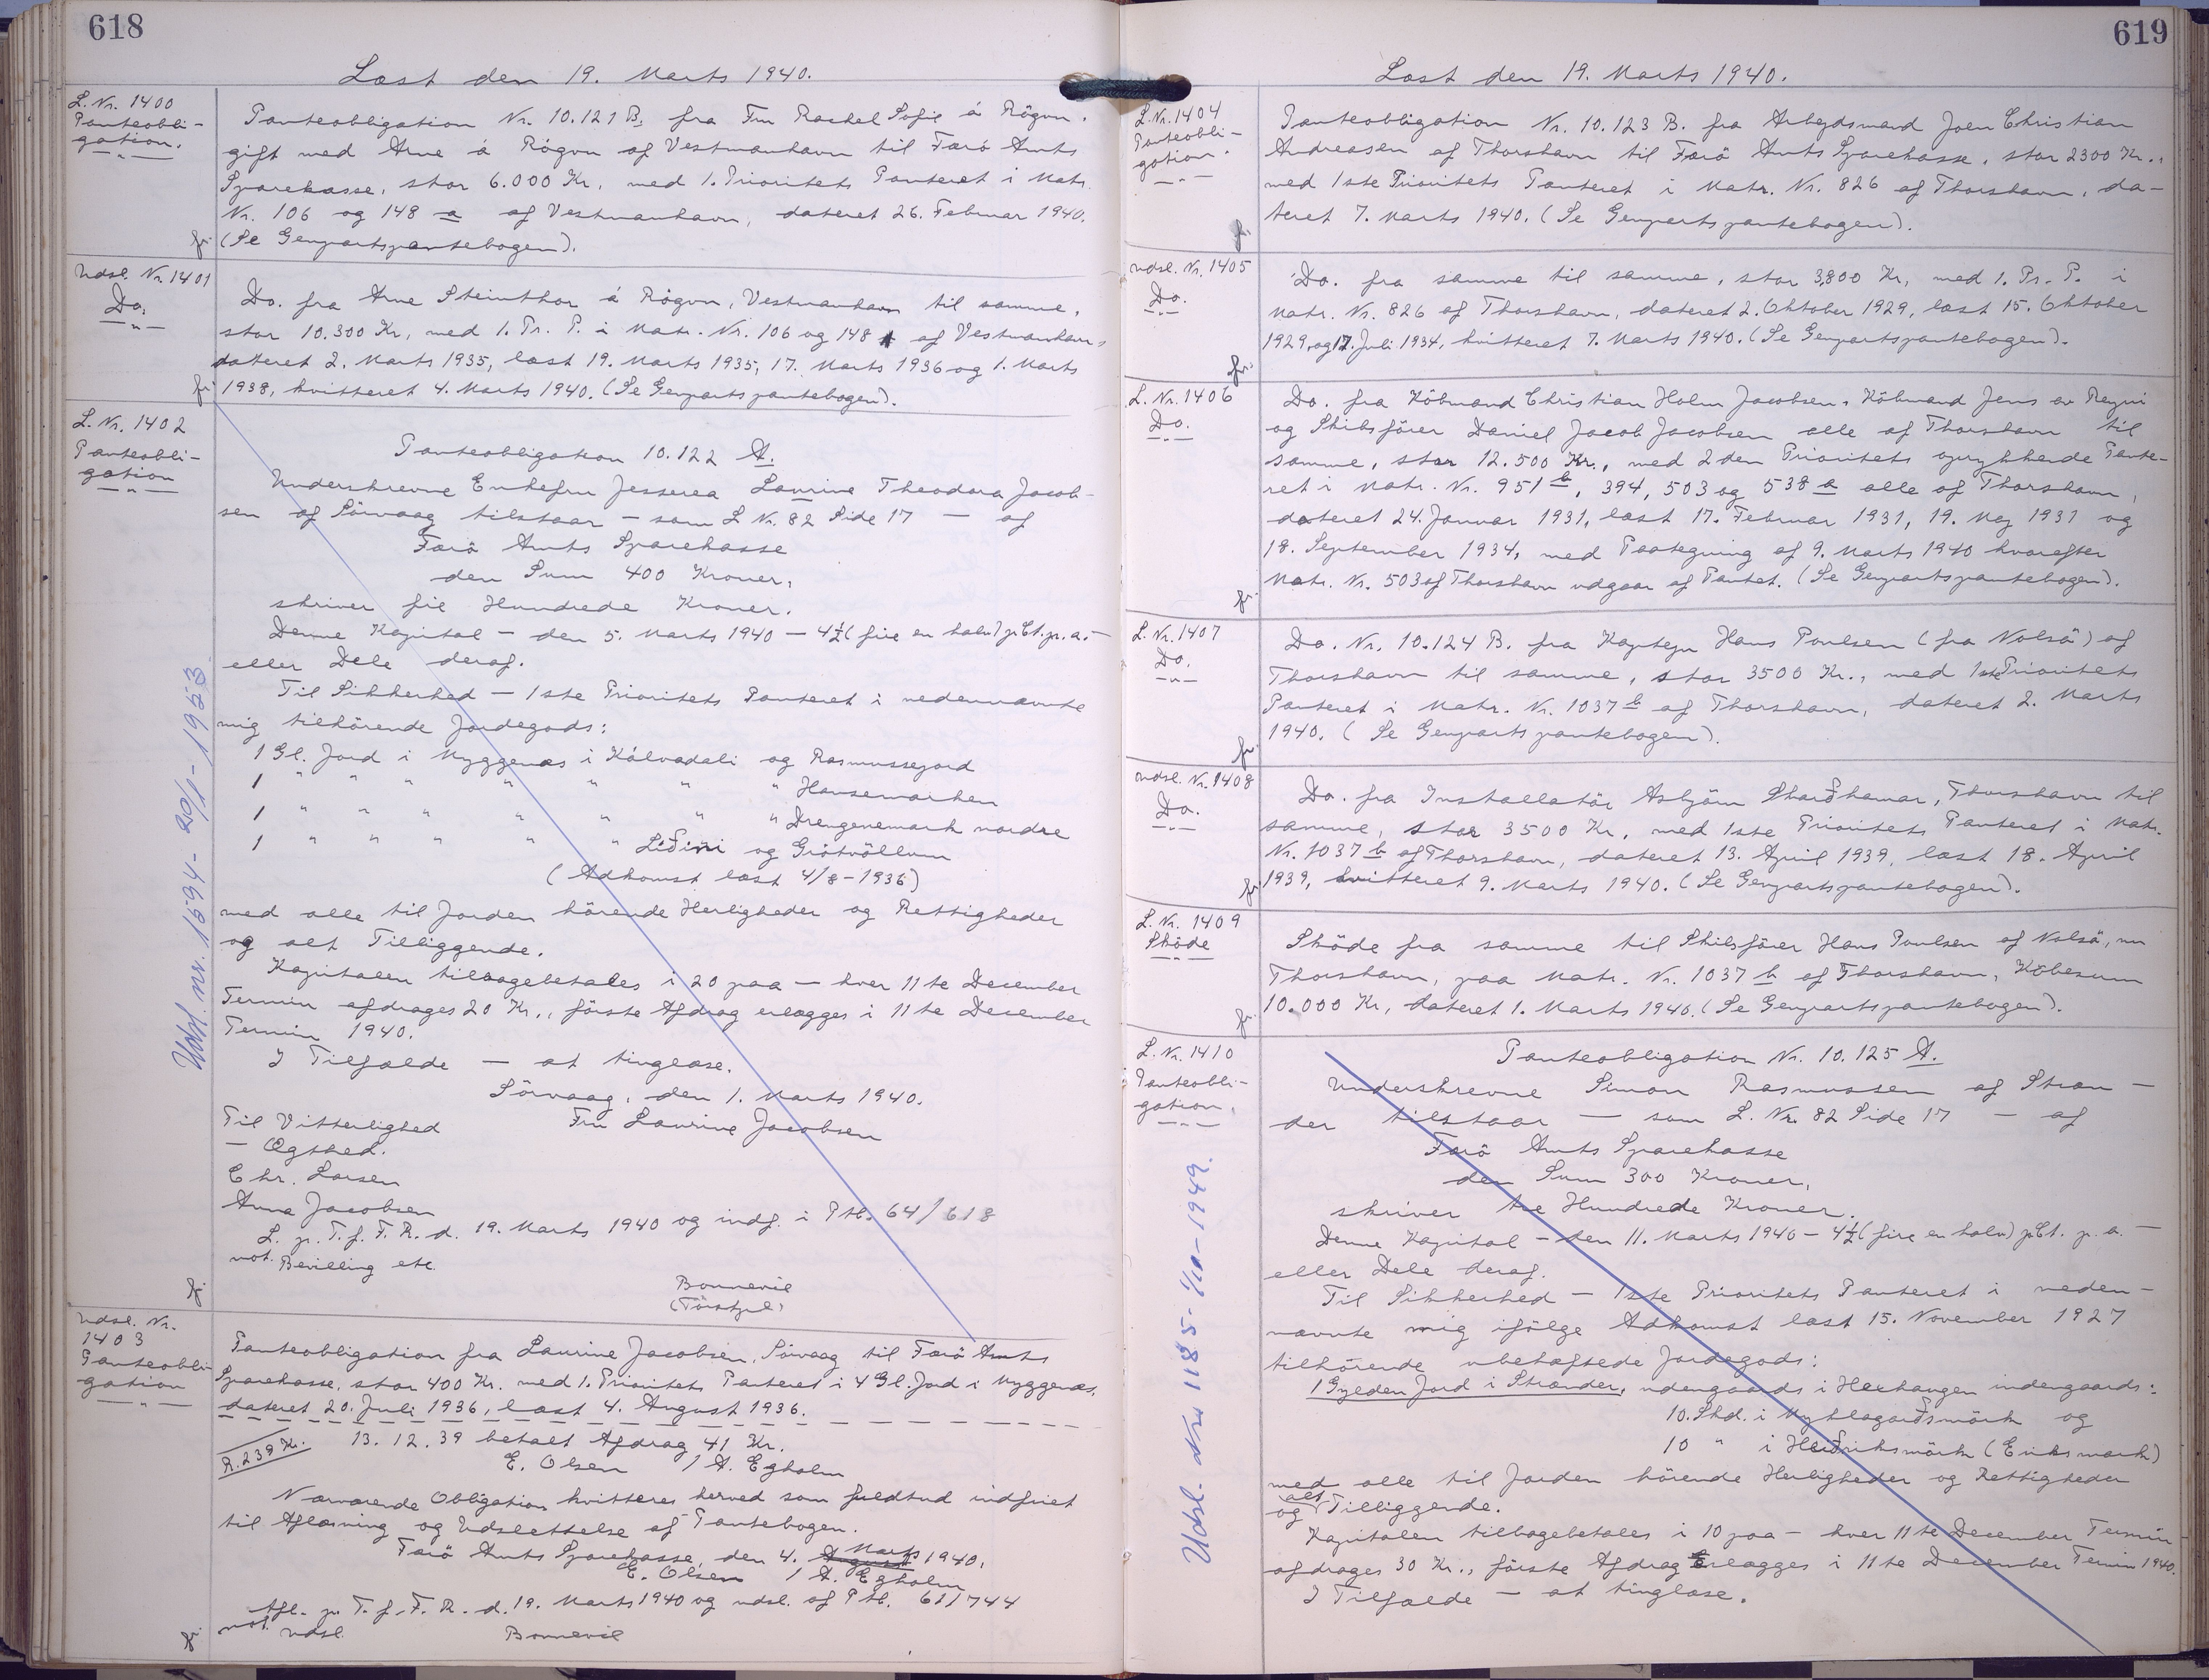 618
Læst den 19. Marts 1940.
L. Nr. 1400
Panteobli-
gation.
Panteobligation Nr. 10.121 B. fra Fru Rachel Sofie á Rógvu.
gift med Arne á Rógvu af Vestmanhavn til Færö Amts
Sparekasse, stor 6.000 Kr, med 1. Prioritets Panteret i Matr.
Nr. 106 og 148 a af Vestmanhavn, dateret 26. Februar 1940.
(Se Genpartspantebogen).
Udsl. Nr. 1401
Do.
Do. fra Arne Steinthor á Rógvu, Vestmanhavn til samme,
stor 10.300 Kr, med 1. Pr. P. i Matr. Nr. 106 og 148 af Vestmanhavn,
dateret 2. Marts 1935, læst 19. Marts 1935, 17. Marts 1936 og 1. Marts
1938, kvitteret 4. Marts 1940. (Se Genpartspantebogen).
L. Nr. 1402
Panteobli-
gation
Panteobligation 10.122 A.
Underskrevne Enkefru Jesserea Laurine Theodora Jacob-
sen af Sörvaag tilstaar – som L Nr. 82 Side 17 – af
Færö Amts Sparekasse
den Sum 400 Kroner,
skriver fire Hundrede Kroner.
Denne Kapital – den 5. Marts 1940 – 4½ (fire en halv) pCt. p. a. –
eller Dele deraf.
Til Sikkerhed – 1ste Prioritets Panteret i nedennævnte
mig tilhörende Jordegods:
1 Gl. Jord i Myggenæs i Kálvadali og Rasmussejord
1 " " " " " " " Hansemarken
1 " " " " " " " Drengenemark nordre
1 " " " " " Liðini og Grótvöllum
(Adkomst læst 4/8-1936)
med alle til Jorden hörende Herligheder og Rettigheder
og alt Tilliggende.
Kapitalen tilbagebetales i 20 paa – hver 11te December
Termin afdrages 20 Kr., förste Afdrag erlægges i 11te December
Termin 1940.
I Tilfælde – at tinglæse.
Sörvaag, den 1. Marts 1940.
Til Vitterlighed Fru Laurine Jacobsen
– Ægthed.
Chr. Larsen
Anna Jacobsen
L. p. T. f. F. R. d. 19. Marts 1940 og indf. i Ptb. 64/618
not. Bevilling etc.
Bonnevie
Udsl. nr. 1594 - 20/1 - 1953
Udsl. Nr.
1403
Panteobli-
gation
Panteobligation fra Laurine Jacobsen, Sörvaag til Færö Amts
Sparekasse, stor 400 Kr. med 1. Prioritets Panteret i 4 Gl. Jord i Myggenæs,
dateret 20. Juli 1936, læst 4. August 1936.
R. 239 Kr. 13.12.39 betalt Afdrag 41 Kr.
E. Olsen / A. Egholm
Nærværende Obligation kvitteres herved som fuldtud indfriet
til Aflæsning og Udslettelse af Pantebogen.
Færö Amts Sparekasse, den 4. August Marts 1940.
E. Olsen / A. Egholm
Afl. p. T. f. F. R. d. 19. Marts 1940 og udsl. af Ptb. 61/744
not. udsl.
Bonnevie
619
Læst den 19. Marts 1940.
L. Nr. 1404
Panteobli-
gation.
Panteobligation Nr. 10.123 B. fra Arbejdsmand Joen Christian
Andreasen af Thorshavn til Færö Amts Sparekasse, stor 2300 Kr.,
med 1ste Prioritets Panteret i Matr. Nr. 826 af Thorshavn, da-
teret 7. Marts 1940. (Se Genpartspantebogen).
Udsl. Nr. 1405
Do.
Do. fra samme til samme, stor 3800 Kr, med 1. Pr. P. i
Matr. Nr. 826 af Thorshavn, dateret 2. Oktober 1929, læst 15. Oktober
1929, og 17. Juli 1934, kvitteret 7. Marts 1940. (Se Genpartspantebogen).
L. Nr. 1406
Do.
Do. fra Köbmand Christian Holm Jacobsen, Köbmand Jens av Reyni
og Skibsförer Daniel Jacob Jacobsen alle af Thorshavn til
samme, stor 12.500 Kr., med 2den Prioritets oprykkende Pante-
ret i Matr. Nr. 951 b, 394, 503 og 538 a alle af Thorshavn,
dateret 24. Januar 1931, læst 17. Februar 1931, 19. Maj 1931 og
18. September 1934, med Paategning af 9. Marts 1940 hvorefter
Matr. Nr. 503 af Thorshavn udgaar af Pantet. (Se Genpartspantebogen).
L. Nr. 1407
Do.
Do. Nr. 10.124 B. fra Kaptejn Hans Poulsen (fra Nolsö) af
Thorshavn til samme, stor 3500 Kr., med 1ste Prioritets
Panteret i Matr. Nr. 1037 b af Thorshavn, dateret 2. Marts
1940. (Se Genpartspantebogen).
Udsl. Nr. 1408
Do.
Do. fra Installatör Asbjörn Skarðhamar, Thorshavn til
samme, stor 3500 Kr, med 1ste Prioritets Panteret i Matr.
Nr. 1037 b af Thorshavn, dateret 13. April 1939, læst 18. April
1939, kvitteret 9. Marts 1940. (Se Genpartspantebogen).
L. Nr. 1409
Sköde
Sköde fra samme til Skibsförer Hans Poulsen af Nolsö, nu
Thorshavn, paa Matr. Nr. 1037 b af Thorshavn, Köbesum
10.000 Kr, dateret 1. Marts 1940. (Se Genpartspantebogen).
L. Nr. 1410
Panteobli-
gation.
Panteobligation Nr. 10.125 A.
Underskrevne Simon Rasmussen af Stran-
der tilstaar – som L. Nr. 82 Side 17 – af
Færö Amts Sparekasse
den Sum 300 Kroner,
skriver tre Hundrede Kroner.
Denne Kapital – den 11. Marts 1940 – 4½ (fire en halv) pCt. p. a. –
eller Dele deraf.
Til Sikkerhed – 1ste Prioritets Panteret i neden-
nævnte mig ifölge Adkomst læst 15. November 1927
tilhörende ubehæftede Jordegods:
1 Gylden Jord i Strander, udengaards i Heshangen indengaards:
10 Skd. i Myklagarðsmörk og
10 " i Heiðriksmörk (Eriksmark)
med alle til Jorden hörende Herligheder og Rettigheder
og alt Tilliggende.
Kapitalen tilbagebetales i 10 paa – hver 11te December Termin
afdrages 30 Kr., förste Afdrag erlægges i 11te December Termin 1940.
I Tilfælde – at tinglæse.
Udsl. Nr. 1185 - 1/10 - 1949.